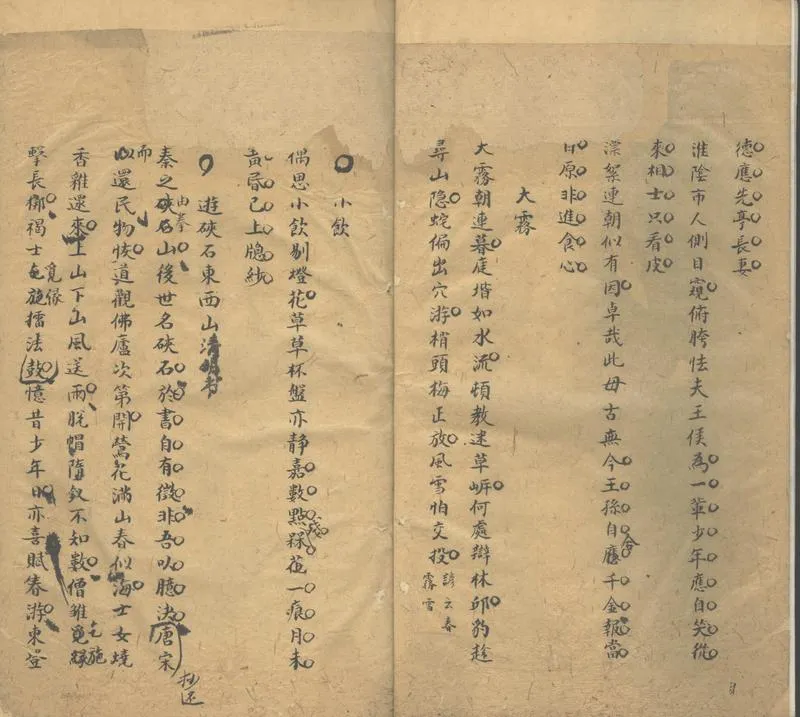 德應先亭長妻
淮陰市人側目窺俯胯怯夫王侯為一軰少年應自笑從
來相士只看皮
漂絮連朝似有因卓哉此母古無今王孫自應千金報當
合
日原非進食心
大霧
大霧朝連暮庭堦如水流頓教迷草㟁何處辯林邱豹趂
尋山隐蛇偏出穴游梢頭梅正放風雪怕交投
諺云春
霧雪
小飲
偶思小飲剔燈花草草杯盤亦静嘉數點一痕月未
黄昏已上牕紗
遊硤石東西山清明書
秦之硤石山後世名硤石於書自有徴非吾以臆决唐宋
由拳
抄还
以還民物恢道觀佛廬次第開鶯花滿山春似海士女燒
而
香雜還來上山下山風送雨脱帽墮釵不知數僧雛覓緑
乞施
擊長㭾褐士乞施擂法鼓憶昔少年日亦喜賦春游東登
覓緣